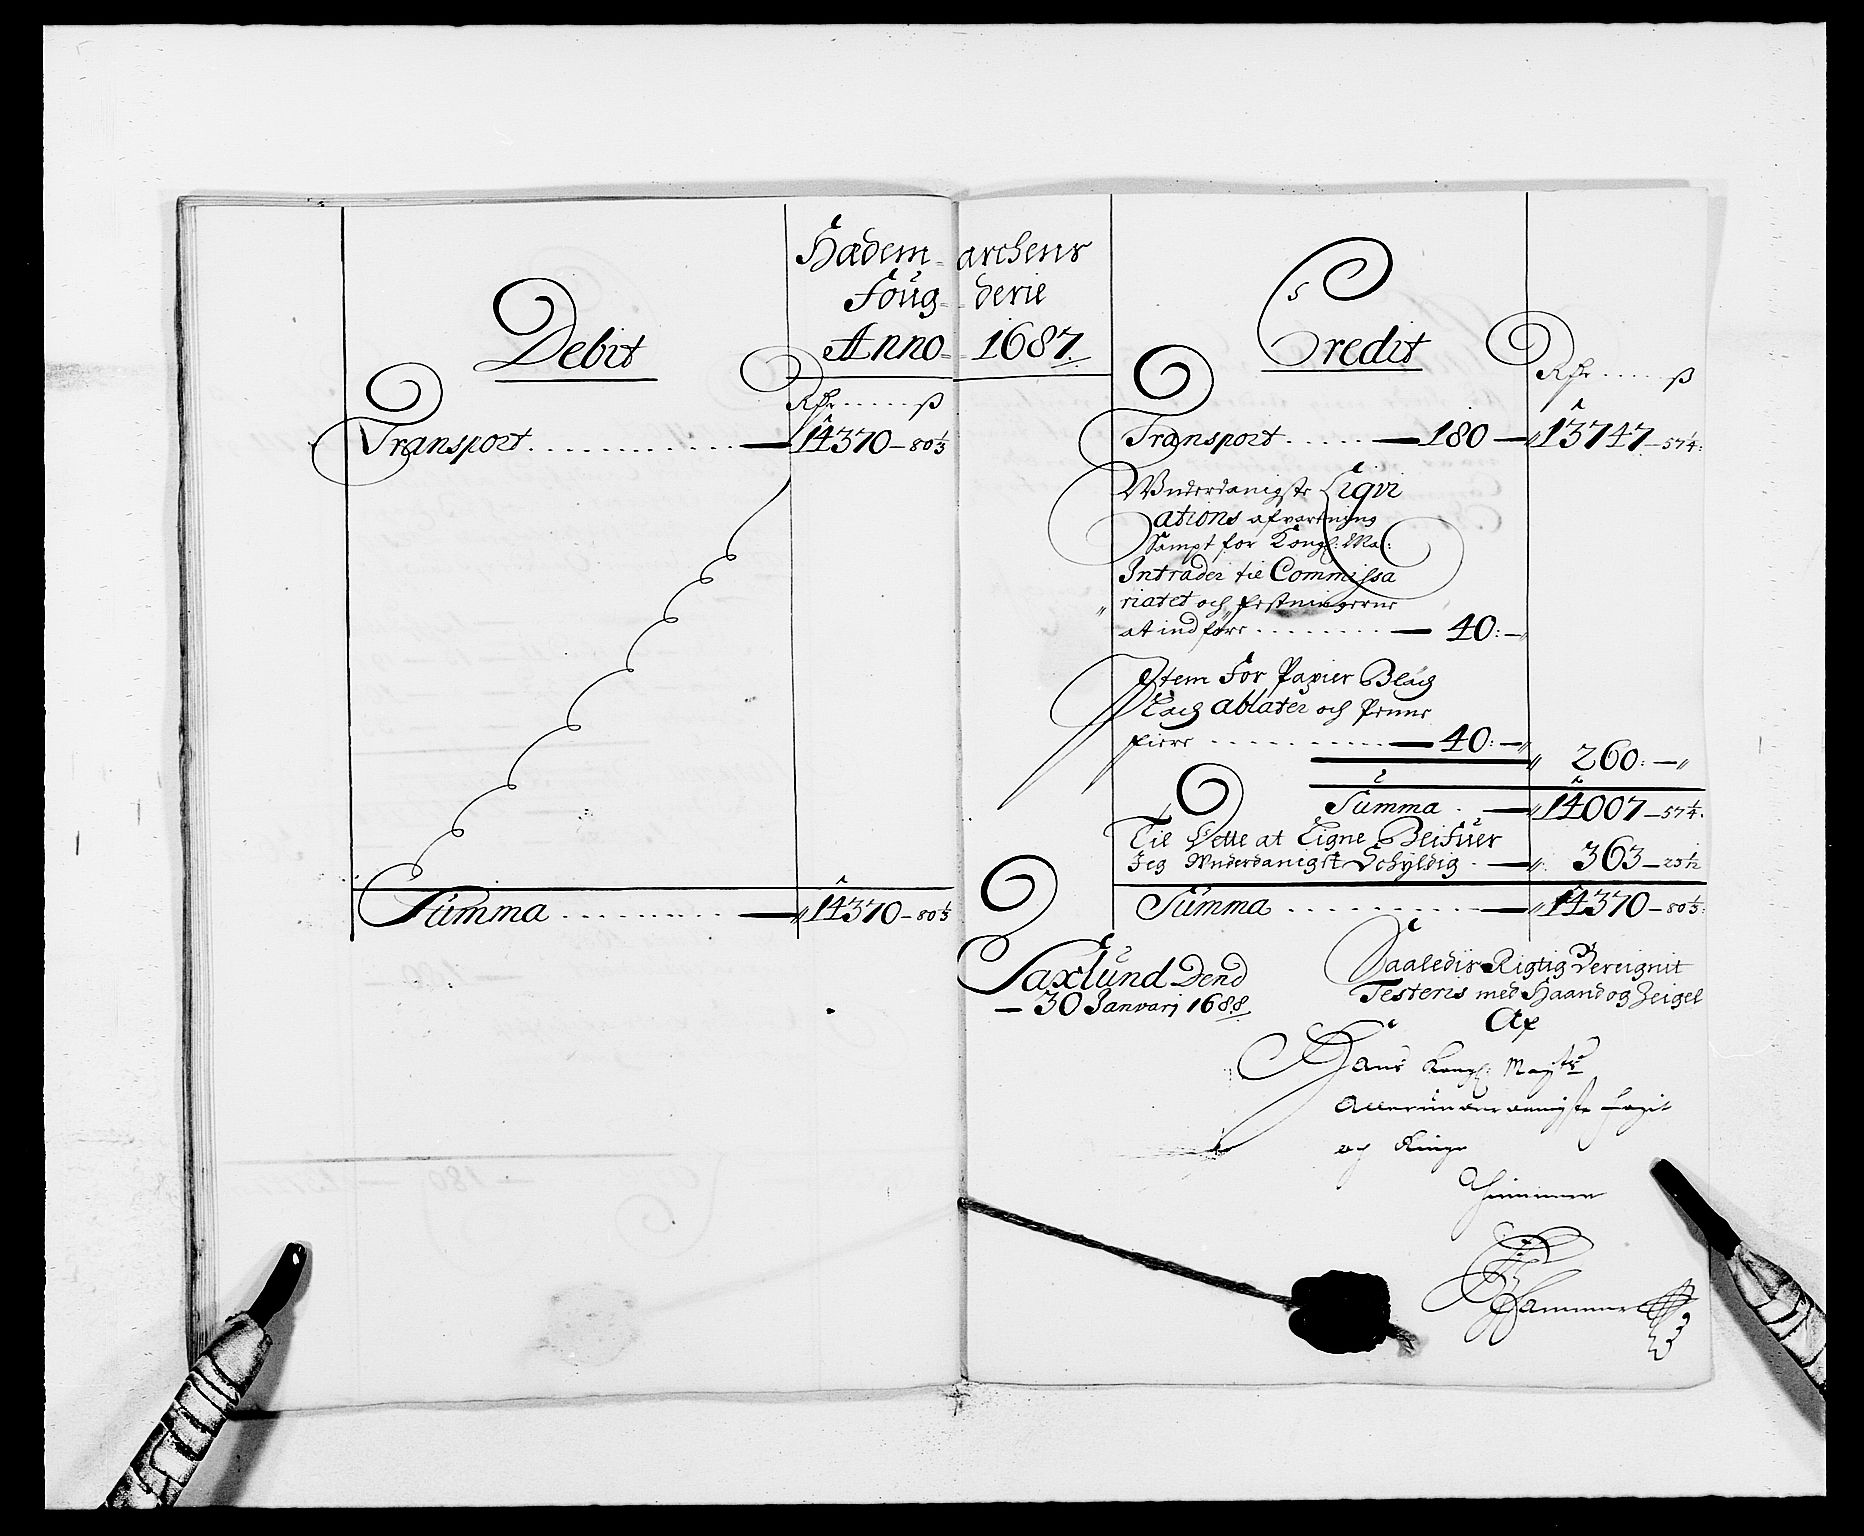 Hædem- archens
Foug- derie
Debit
Anno 1687.
Rdr ..... ß
Transport ............ 14370 – 80⅓
Summa ........... " 14370 – 80⅓
Credit
Rdr ..... ß
Transport ..... 180 – " 13747 – 57¼
Wnderdanigste Liqvi
ations afvartning
Sampt for Kongl: Ma:
Intrader til Commissa
riatet och festningerne
at indføre ........ 40: – "
Item For Papier Blæg
Lack ablater och Penne
fiere .......... 40: – " " 260: – "
Summa . – " 14007 – 57¼
Til dette at Ligne Blifuer
Jeg Wnderdanigst Schyldig . – " 363 – 23½
Summa .......... " 14370 – 80⅓
Saxlund Dend
30 Januarj 1688.
Saaledis Rigtig Bereignit
Testeris med Haand og Zeigel
Af
Hans Kongl: Mayts
Allerunderdanigste
och Ringe
Thienner
Hammer